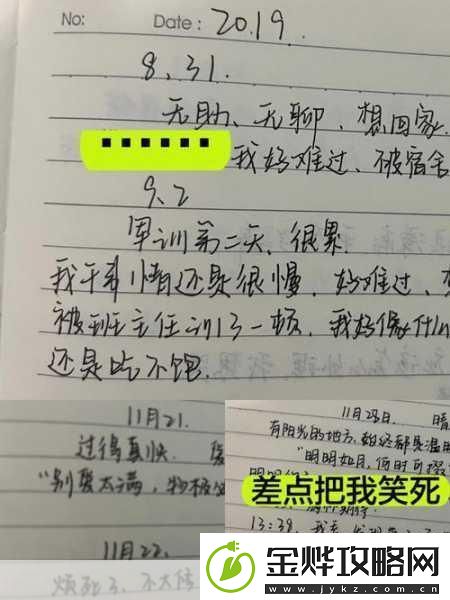 No:
Date: 2019.
8.31.
无助、无聊、想回家.
我好难过、被宿舍
9.2
军训第二天、很累.
我干事情还是很慢、好难过、
被班主任训了一顿、我好像什么
还是吃不饱.
11月21.
过得真快.
“别爱太满,物极必
11月22.
烦死了、不太信
11月23日. 晴
有阳光的地方、始终都是温
“明明如月,何时可掇
差点把我笑死
13:38、我
金烨攻略网
www.jykz.com.cn